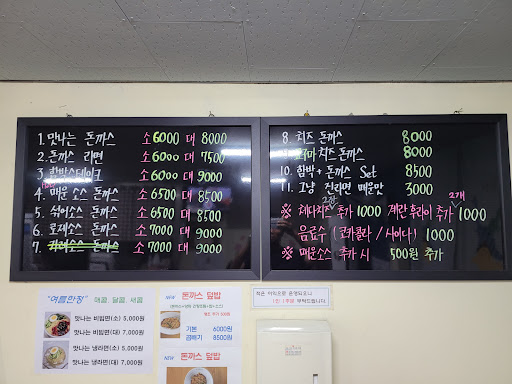 1. 맛나는 돈까스 소 6000 대 8000
2. 돈까스 라면 소 6000 대 7500
3. 함박스테이크 소 6000 대 9000
4. 매운 소스 돈까스 소 6500 대 8500
5. 섞어소스 돈까스 소 6500 대 8500
6. 로제소스 돈까스 소 7000 대 9000
7. 카레소스 돈까스 소 7000 대 9000
8. 치즈 돈까스 8000
치즈 돈까스 8000
10. 함박 + 돈까스 Set 8500
11. 그냥 진라면 매운맛 3000
2장 2개
※ 체다치즈 추가 1000 계란후라이 추가 1000
음료수 (코카콜라 / 사이다) 1000
※ 매운소스 추가 시 500원 추가
"여름한정" 매콤, 달콤, 새콤
맛나는 비빔면(소) 5,000원
맛나는 비빔면(대) 7,000원
맛나는 냉라면(소) 5,000원
맛나는 냉라면(대) 7,000원
NEW 돈까스 덮밥
기본 6000원
곱빼기 8500원
NEW 돈까스 덮밥
1인 1주문 부탁드립니다.